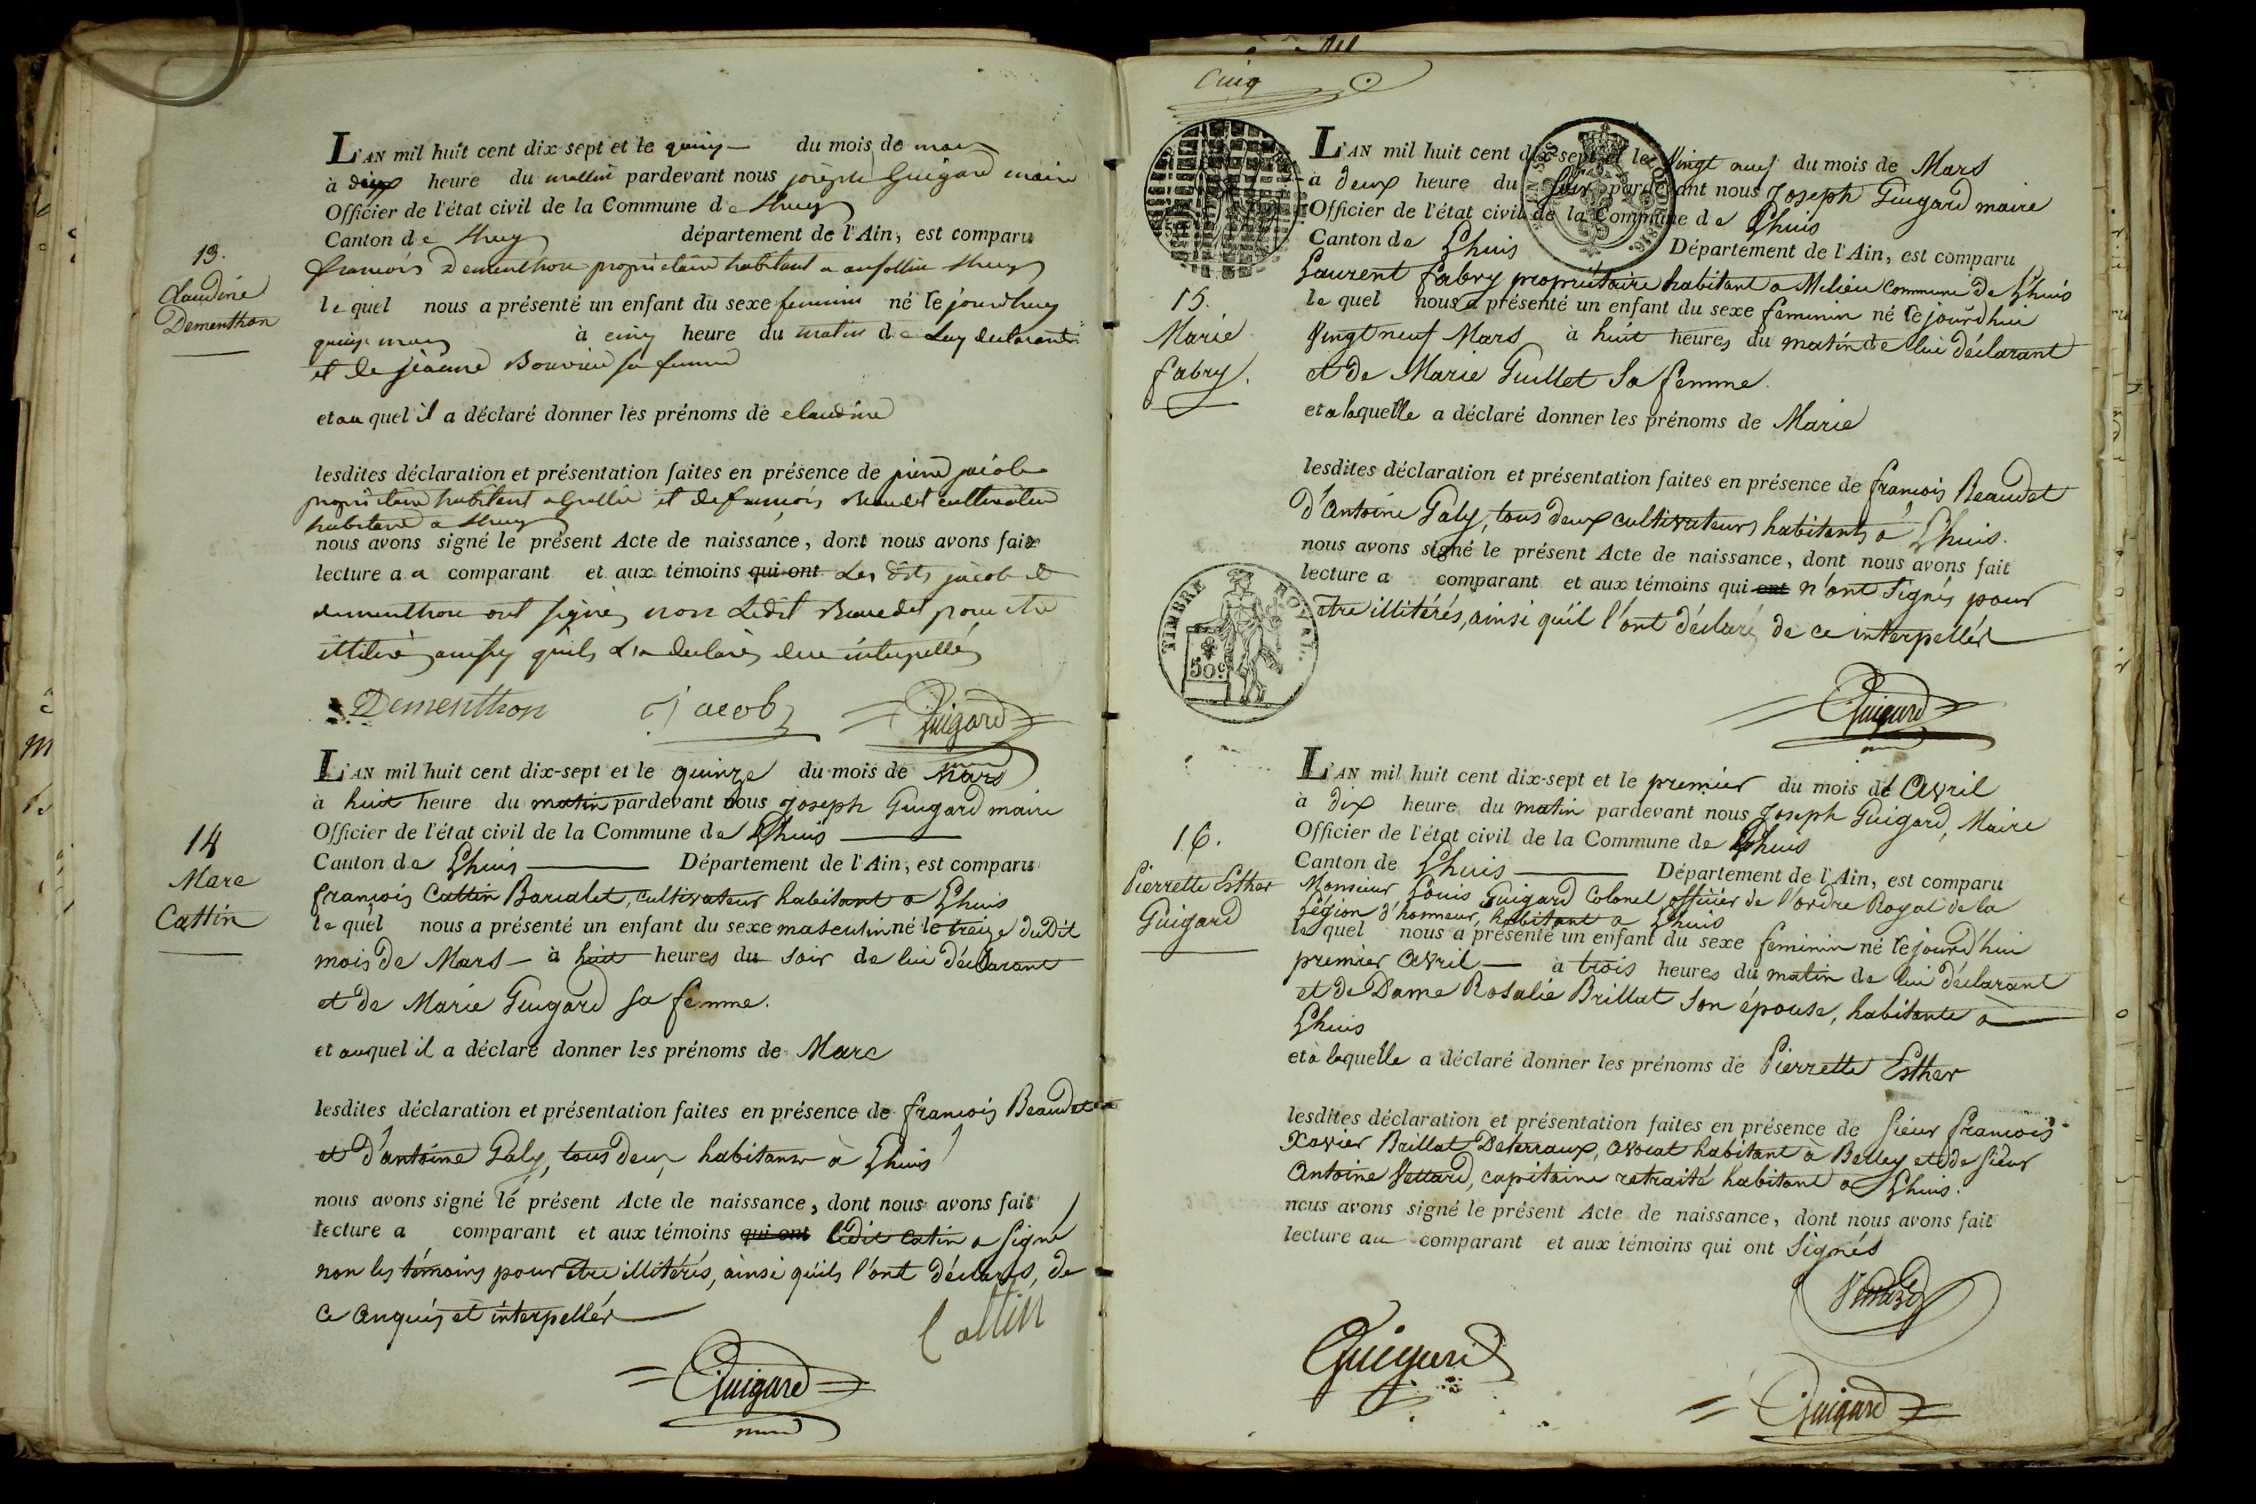 13.
Claudine
Dementhon
L'AN mil huit cent dix-sept et le quinze du mois de mars
à dix heure du mattin pardevant nous joseph Guigard maire
Officier de l'état civil de la Commune de Lhuys
Canton de Lhuys département de l'Ain, est comparu
francois Dementhon propriétaire habitant a
le quel nous a présenté un enfant du sexe feminin né le jourdhuy
quinze mars à cinq heure du matin de Luy declarant
et de jeanne Bouvier sa femme
et au quel il a déclaré donner les prénoms de claudine
lesdites déclaration et présentation faites en présence de pierre jacob
propriétaire habitant a et de francois Beaudet cultivateur
habitant a Lhuys
nous avons signé le présent Acte de naissance, dont nous avons fait
lecture a a comparant et aux témoins qui ont Les dits jacob et
dementhon ont signés non Ledit Beaudet pour etre
illiteré ainssy quils L'on declarés de ce interpellés
Dementhon jacob Guigard
14
Marc
Cattin
L'AN mil huit cent dix-sept et le quinze du mois de Mars
à huit heure du matin pardevant nous joseph Guigard maire
Officier de l'état civil de la Commune de Lhuis
Canton de Lhuis Département de l'Ain, est comparu
françois Cattin Barcalet, cultivateur habitant a Lhuis
le quel nous a présenté un enfant du sexe masculin né le treize dudit
mois de Mars à huit heures du soir de lui déclarant
et de Marie Guigard sa femme.
et auquel il a déclaré donner les prénoms de Marc
lesdites déclaration et présentation faites en présence de françois Beaudet
et d'antoine Galy, tous deux habitans à Lhuis
nous avons signé le présent Acte de naissance, dont nous avons fait
lecture a comparant et aux témoins qui ont ledit Catin a signé
non les témoins pour être illitérés, ainsi qu'ils l'ont déclarés, de
ce enquis et interpellés
Cattin
Guigard
Cinq
L'AN mil huit cent dix-sept et le Vingt neuf du mois de Mars
à deux heure du soir pardevant nous Joseph Guigard maire
Officier de l'état civil de la Commune de Lhuis
Canton de Lhuis Département de l'Ain, est comparu
15.
Marie
fabry.
Laurent fabry propriétaire habitant a Milieu commune de Lhuis
le quel nous a présenté un enfant du sexe feminin né le jourd'hui
Vingt neuf Mars à huit heures du matin de lui déclarant
et de Marie Guillet Sa femme.
et a laquelle a déclaré donner les prénoms de Marie
lesdites déclaration et présentation faites en présence de françois Beaudet
d'Antoine Galy, tous deux cultivateurs habitants à Lhuis.
nous avons signé le présent Acte de naissance, dont nous avons fait
lecture a comparant et aux témoins qui ont n'ont Signés pour
être illitérés, ainsi qu'il l'ont déclaré, de ce interpellér
TIMBRE ROYAL.
50c
Guigard
16.
Pierrette Esther
Guigard
L'AN mil huit cent dix-sept et le premier du mois de Avril
à dix heure du matin pardevant nous Joseph Guigard, Maire
Officier de l'état civil de la Commune de Lhuis
Canton de Lhuis Département de l'Ain, est comparu
Monsieur Louis Guigard Colonel officier de l'ordre Royal de la
Légion d'honneur, habitant a Lhuis
le quel nous a présenté un enfant du sexe feminin né le jourd'hui
premier Avril à trois heures du matin de lui déclarant
et de Dame Rosalie Brillat Son épouse, habitante à
Lhuis
et à laquelle a déclaré donner les prénoms de Pierrette Esther
lesdites déclaration et présentation faites en présence de Sieur françois
Xavier Brillat Deterraux, avocat habitant à Belley et de Sieur
Antoine Vettard, capitaine retraité habitant a Lhuis.
nous avons signé le présent Acte de naissance, dont nous avons fait
lecture au comparant et aux témoins qui ont Signés
Vettard
Guigard
Guigard